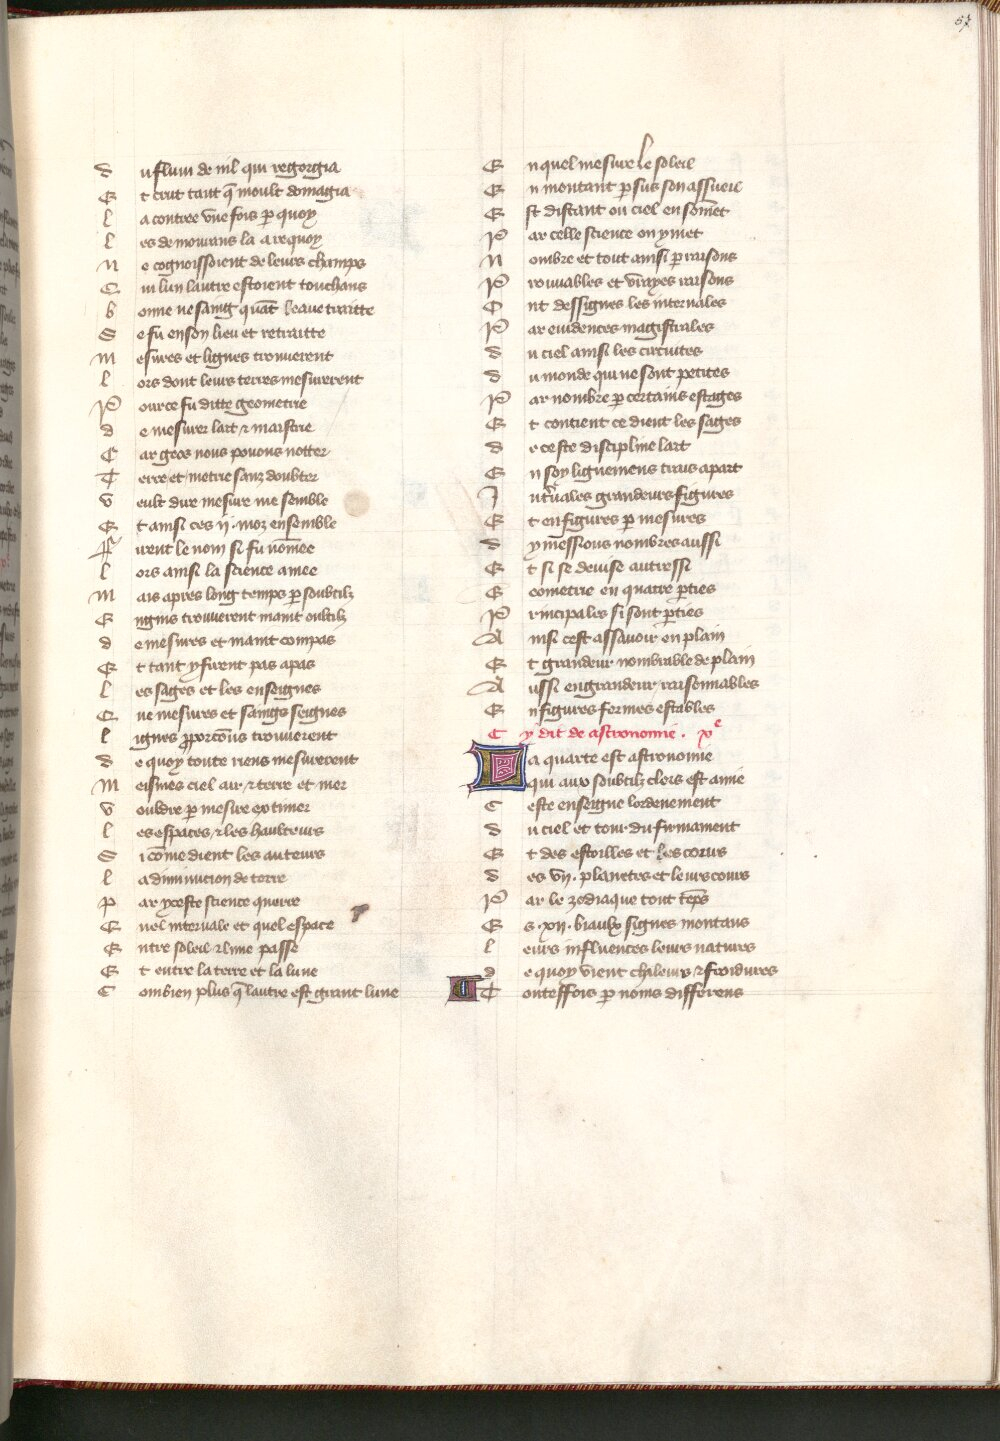 57
Du fluui de nil qui regorgia
Et crut tant q̄ moult domagia
La contree vne fois ꝑ quoy
Les demourans la a requoy
Ne cognoissoient de leurs champs
Cui lun lautre estoient touchans
Bonne ne saing quāt leaue traitte
Se fu en son lieu et retraitte
Mesures et lignes trouuerent
Lors dont leurs terres mesurerent
Pour ce fu ditte geometrie
De mesurer lart ⁊ maistrie
Car geos nous pouons notter
Terre et metrie sanz doubter
Veult dire mesure me semble
Et ainsi ces ij. moz ensemble
Firent le nom si fu nōmee
Lors ainsi la science amee
Mais apres long temps ꝑ soubtilz
Engins trouuerent maint oubtilz
De mesures et maint compas
Et tant y furent pas apas
Les sages et les enseignes
Que mesures et saings seignes
Lignes ꝓporcōns trouuerent
De quoy toute riens mesurerent
Meismes ciel air ⁊ terre et mer
Vouldre ꝑ mesure extimer
Les espaces ⁊ les haulteurs
Si cōme dient les auteurs
La diminucion de terre
Par yceste science querre
Quel interuale et quel espace
Entre soleil ⁊ lune passe
Et entre la terre et la lune
Combien plus q̄ lautre est grant lune
En quel mesure le soleil
En montant ꝑ sus son assueil
Est distant ou ciel en sōmet
Par celle science on y met
Nombre et tout ainsi ꝑ raisons
Prouuables et vrayes raisons
Ont dessignes les interuales
Par euidences magistrales
Du ciel ainsi les circuites
Du monde qui ne sont petites
Par nombre ꝑ certains estages
Et contient ce dient les sages
De ceste discipline lart
En soy lignemens tirus apart
Intuales grandeurs figures
Et en figures ꝑ mesures
Dymessions nombres aussi
Et si se deuise autressi
Geometrie en quatre ꝑties
Principales si sont ꝑties
Ainsi cest assauoir en plain
Et grandeur nombrable de plain
Aussi en grandeur raisonnables
En figures fermes estables
Cy dit de astronomie. xᵉ
La quarte est astronomie
qui aux soubtilz clers est amie
Ceste enseigne lordenement
Du ciel et tour du firmament
Et des estoilles et les cours
Des vij. planetes et leurs cours
Par le zodiaque tout tēps
Es xij. biaulx signes montans
Leurs influences leurs natures
De quoy vient chaleurs ⁊ froidures
Touteffois ꝑ noms differens